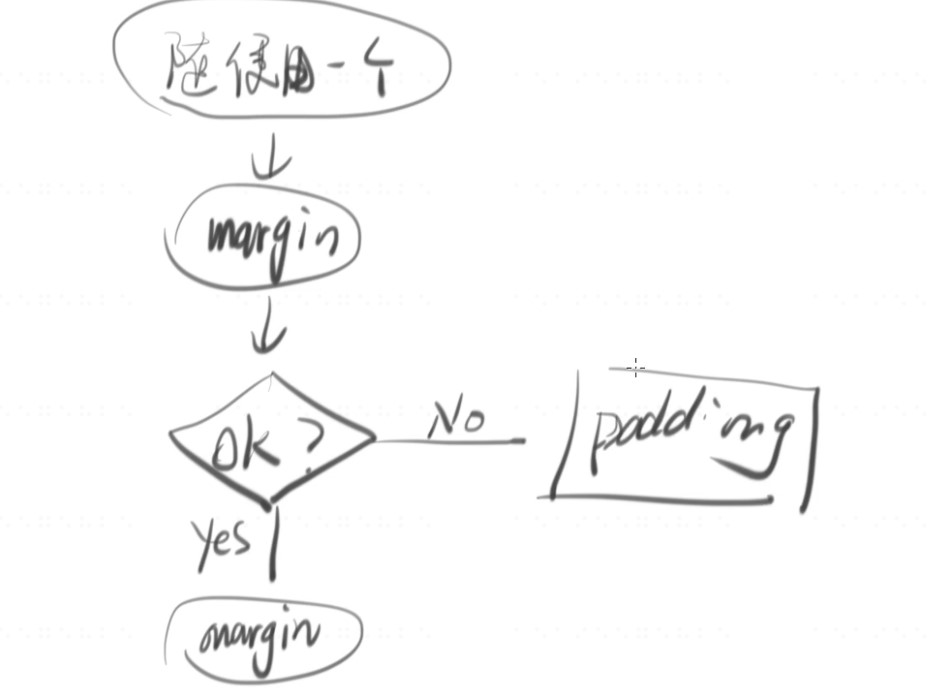 随便用一个
margin
OK?
No
padding
Yes
margin